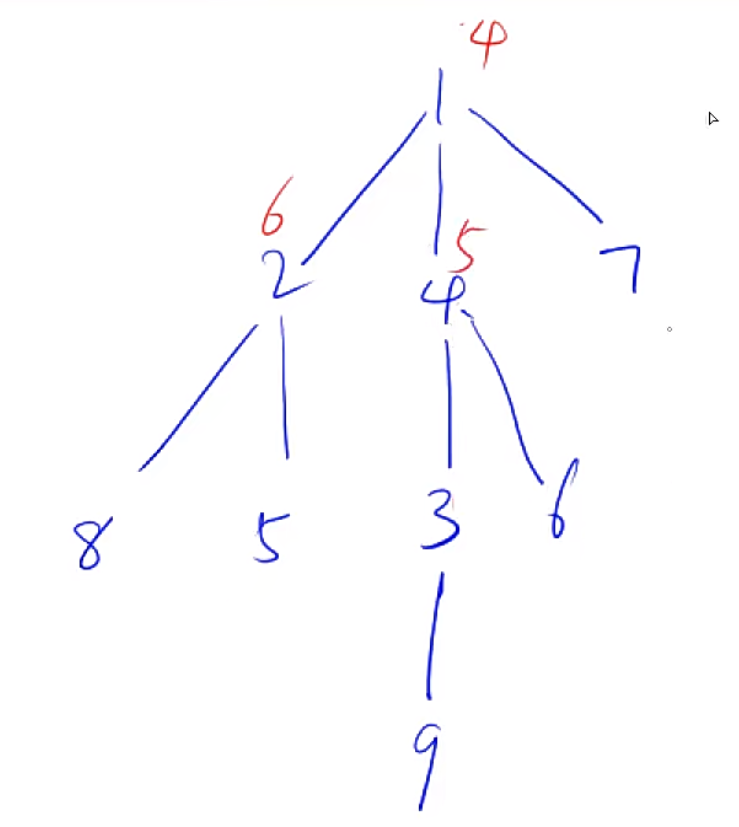 4
1
6
2
5
4
7
8
5
3
6
9